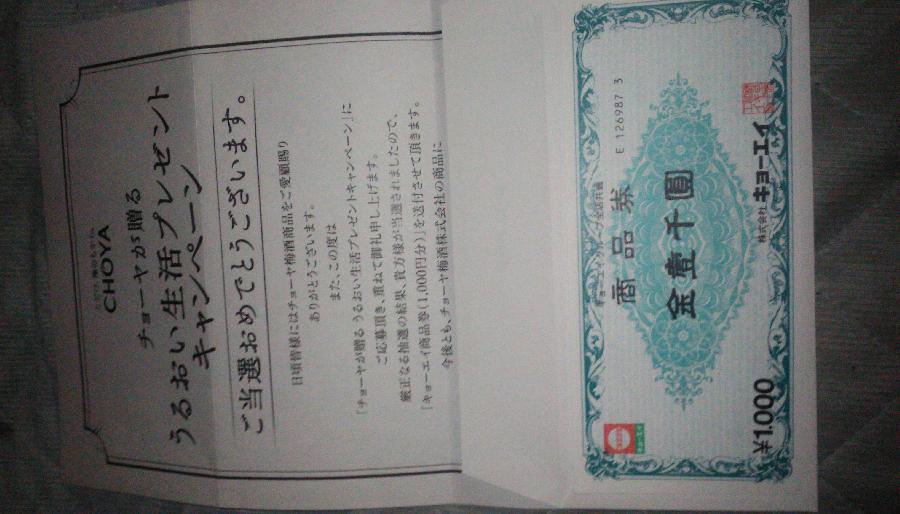 CHOYA
チョーヤが贈る
うるおい生活プレゼント
キャンペーン
ご当選おめでとうございます。
日頃皆様にはチョーヤ梅酒商品をご愛顧賜り
ありがとうございます。
また、この度は
「チョーヤが贈る うるおい生活プレゼントキャンペーン」に
ご応募頂き、重ねて御礼申し上げます。
厳正なる抽選の結果、貴方様が当選されましたので、
「キョーエイ商品券(1,000円分)」を送付させて頂きます。
今後とも、チョーヤ梅酒株式会社の商品に
キョーエイグループ全店共通
商品券
E 126987 3
金壹千圓
¥1,000
株式会社 キョーエイ